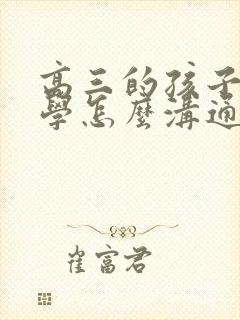 高三的孩子
學怎麼溝通
崔富君